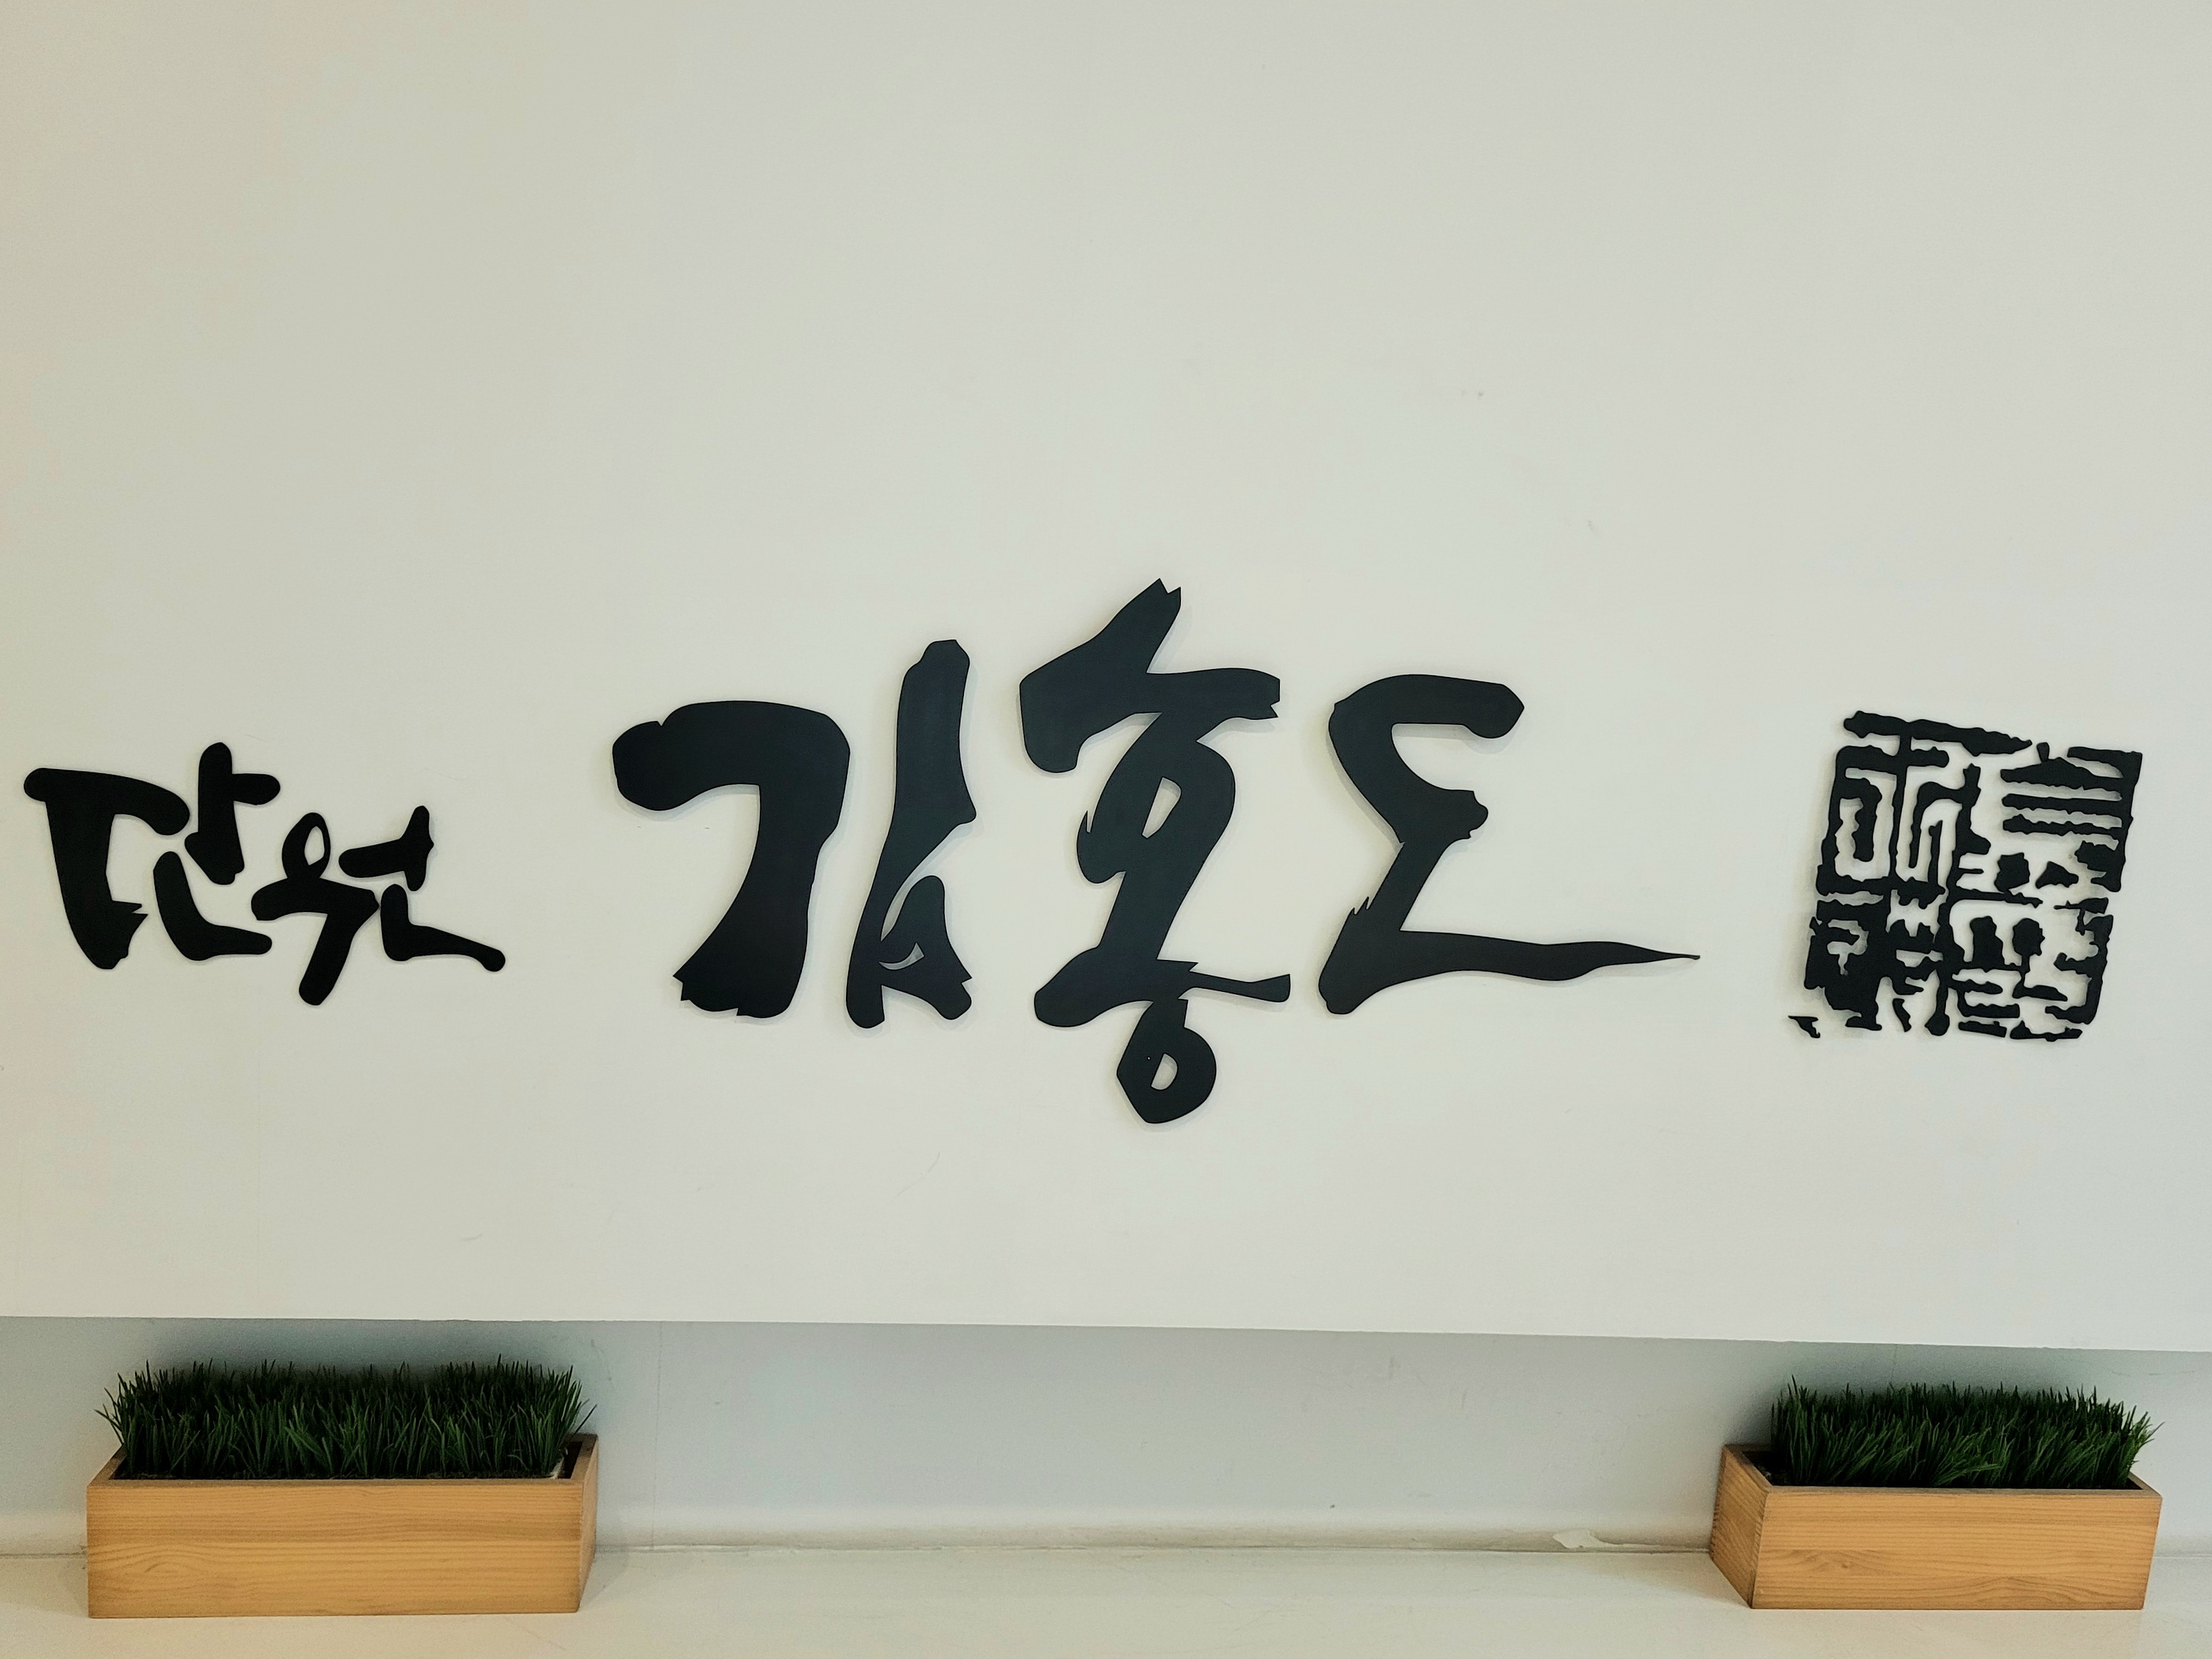 단원 김홍도